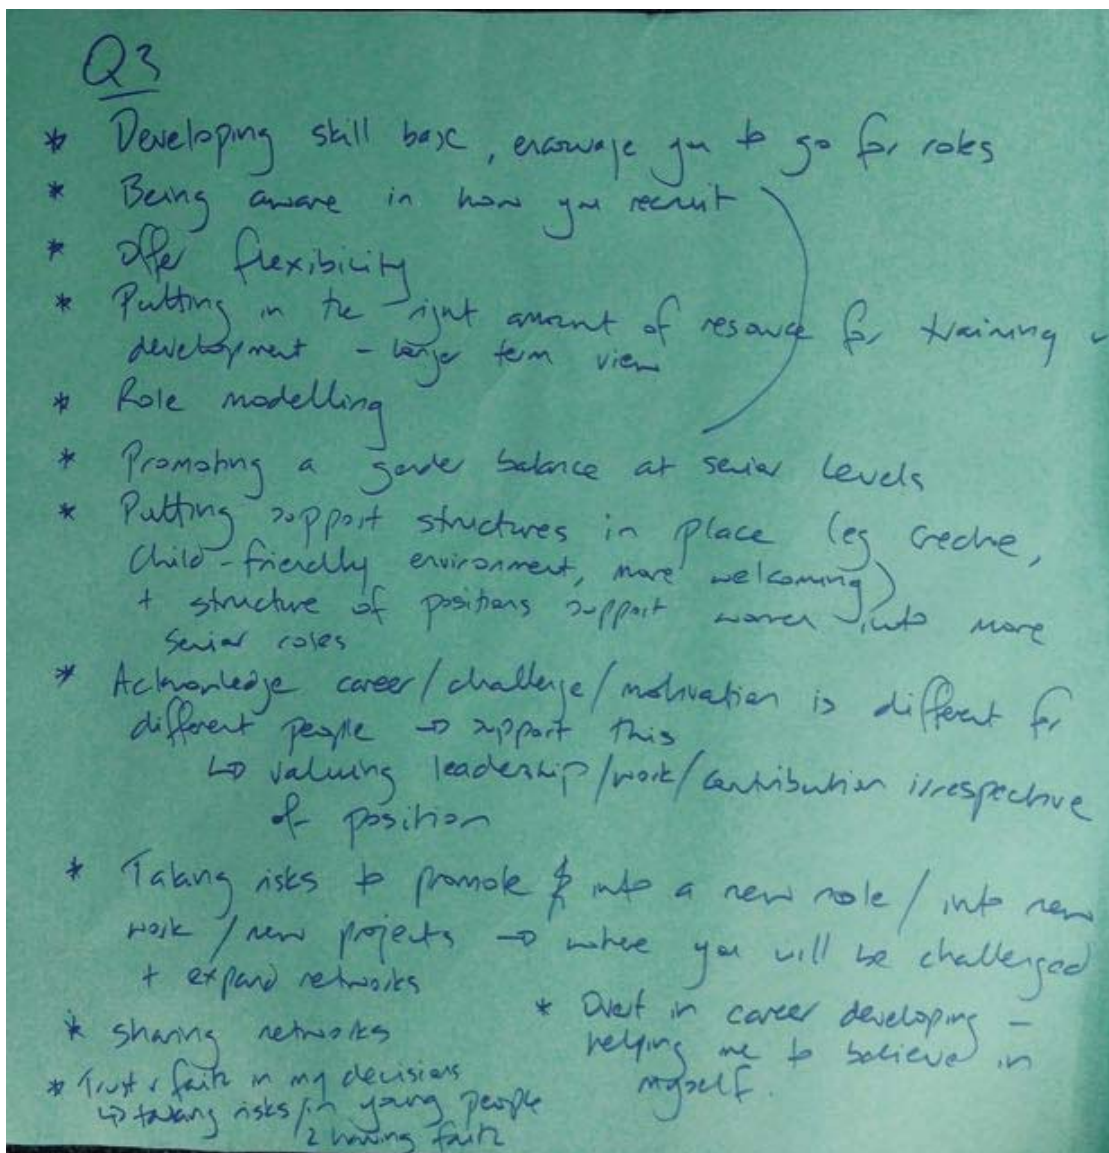 Q3
* Developing skill base, encourage you to go for roles
* Being aware in how you recruit
* Offer flexibility
* Putting in the right amount of resource for training
development - longer term view
* Role modelling
* Promoting a gender balance at senior levels
* Putting support structures in place (eg creche,
child-friendly environment, more welcoming)
+ structure of positions support women into more
senior roles
* Acknowledge career/challenge/motivation is different for
different people → support this
↳ valuing leadership/work/contribution irrespective
of position
* Taking risks to promote into a new role / into new
work / new projects → where you will be challenged
+ expand networks
* Sharing networks
* Trust & faith in my decisions
↳ taking risks / in young people
& having faith
* Overt in career developing -
helping me to believe in
myself.